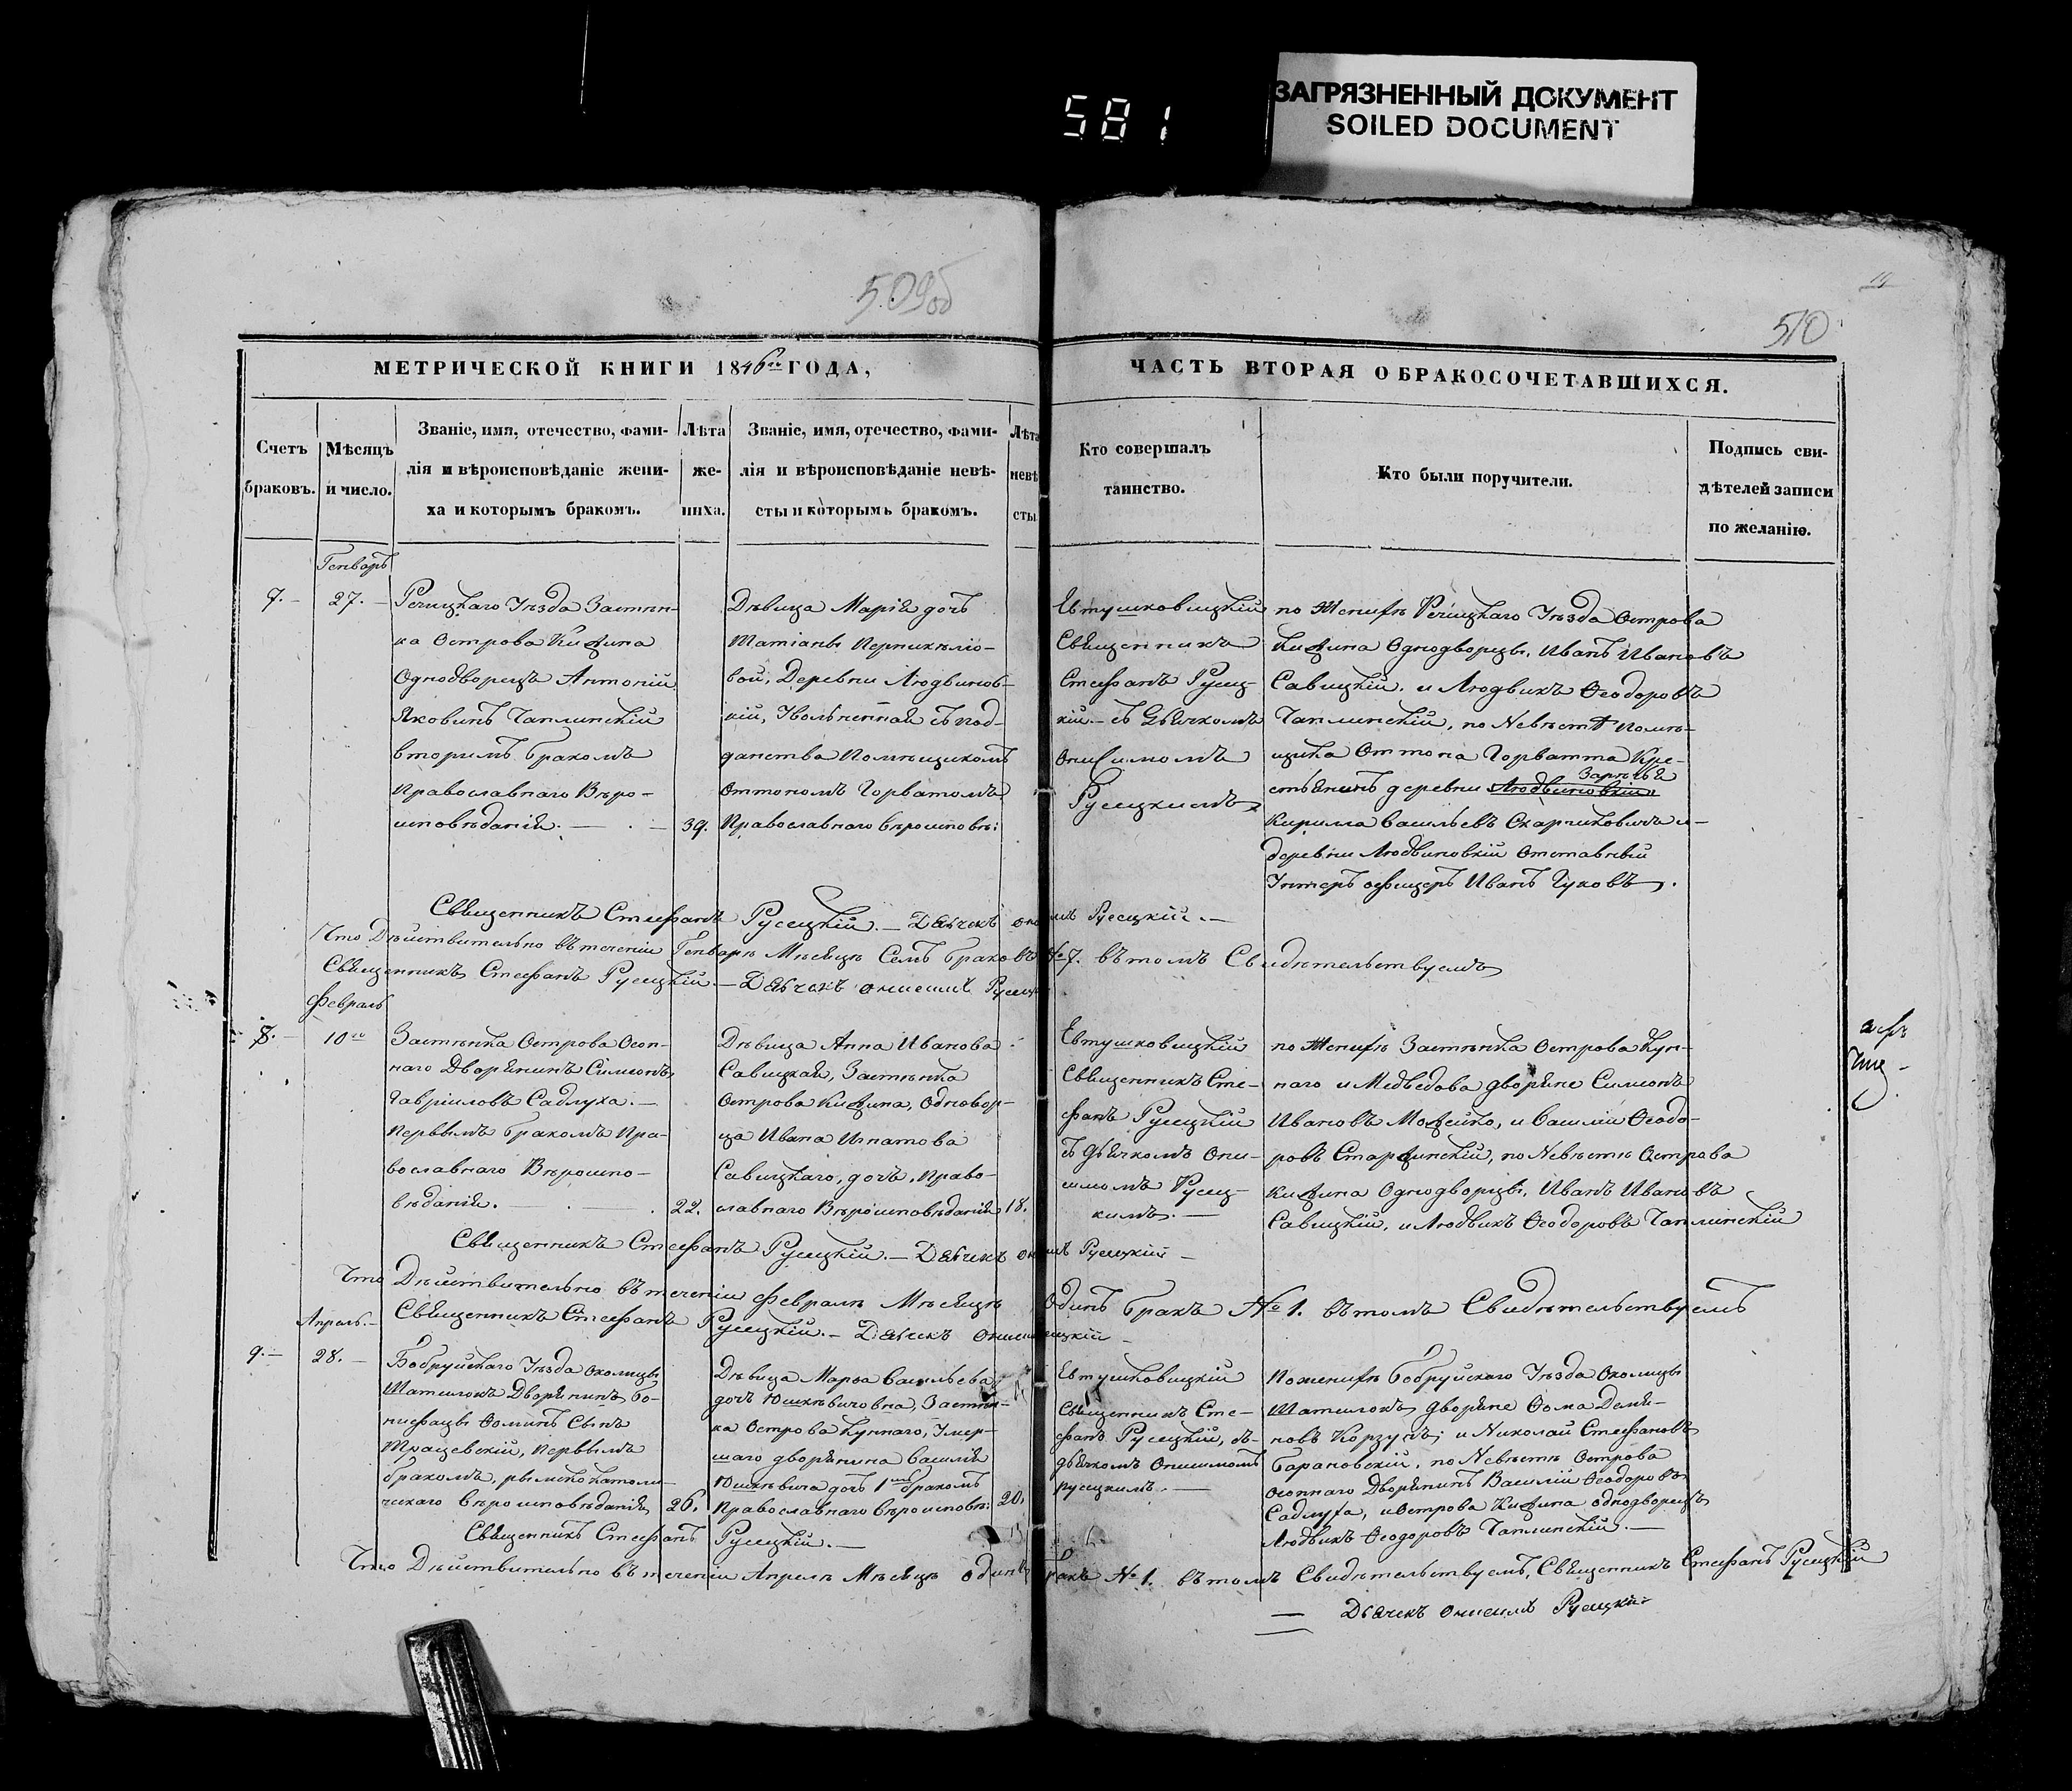 581
ЗАГРЯЗНЕННЫЙ ДОКУМЕНТ
SOILED DOCUMENT
509об
510
МЕТРИЧЕСКОЙ КНИГИ 1846го ГОДА,
ЧАСТЬ ВТОРАЯ О БРАКОСОЧЕТАВШИХСЯ.
Счетъ
браковъ.
Мѣсяцъ
и число.
Званіе, имя, отечество, фами-
лія и вѣроисповѣданіе жени-
ха и которымъ бракомъ.
Лѣта
же-
ниха.
Званіе, имя, отечество, фами-
лія и вѣроисповѣданіе невѣ-
сты и которымъ бракомъ.
Лѣта
невѣ
сты
Кто совершалъ
таинство.
Кто были поручители.
Подпись сви-
дѣтелей записи
по желанію.
Генварь
7.
27.
Речицкаго Уѣзда Застѣн-
ка Острова
Однодворецъ Антоній
Яковинъ Чаплинскій
вторымъ бракомъ
Православнаго Вѣро-
исповѣданія.
39.
Дѣвица Марія дочь
Татіаны
вой, Деревни Людвинов-
кій, Уволненная съ под-
данства Помѣщикомъ
Оттономъ Горватомъ
Православнаго вѣроисповѣ:
Евтушковицкій
Священникъ
Стефанъ Русец-
кій съ Дьячкомъ
Онисимомъ
Русецкимъ
по Женихѣ Речицкаго Уѣзда Острова
Однодворцы, Иванъ Ивановъ
Савицкій, и Людвикъ Ѳеодоровъ
Чаплинскій, по Невѣстѣ помѣ-
щика Оттона Горватта Кре-
стьянинъ деревни Людвиновкіи
Кирилла Васильевъ и
деревни Людвиновкіи Отставный
Унтеръ офицеръ Иванъ Чуковъ.
Священникъ Стефанъ Русецкій. — Дьячекъ Русецкій.
Что Дѣйствительно въ теченіи Генварѣ Мѣсяцѣ Семь браковъ № 7. въ томъ Свидѣтельствуемъ
Священникъ Стефанъ Русецкій. — Дьячекъ Онисимъ
Февраль
8.
10го
Застѣнка Острова Осоп-
наго Дворянинъ Симонъ
Гавріиловъ Садлуха.
Первымъ бракомъ Пра-
вославнаго Вѣроиспо-
вѣданія.
22.
Дѣвица Анна Иванова
Савицкая, Застѣнка
Острова Однодвор-
ца Ивана Игнатова
Савицкаго, дочь, Право-
славнаго Вѣроисповѣданія
18.
Евтушковицкій
Священникъ Сте-
фанъ Русецкій
съ Дьячкомъ Они-
симомъ Русец-
кимъ.
по Женихѣ Застѣнка Острова Куп-
наго и Медведова дворяне Симонъ
Ивановъ и Василіи Ѳеодо-
ровъ по Невѣстѣ Острова
Однодворцы, Иванъ Ивановъ
Савицкій, и Людвикъ Ѳеодоровъ Чаплинскій
Священникъ Стефанъ Русецкій. — Дьячекъ Русецкій
Что Дѣйствительно въ теченіи Февралѣ Мѣсяцѣ Одинъ бракъ № 1. въ томъ Свидѣтельствуемъ
Священникъ Стефанъ Русецкій. — Дьячекъ
Апрель.
9.
28.
Бобруйскаго Уѣзда околицы
Шатилокъ Дворянинъ Бо-
нифацы Ѳоминъ Сынъ
первымъ
бракомъ, римско католи-
ческаго вѣроисповѣданія
26.
Дѣвица Марья Васильева
дочь Юшкѣвичовна, Застѣн-
ка Острова Купнаго, Умер-
шаго дворянина Василія
Юшкѣвича дочь 1мъ бракомъ
Православнаго вѣроисповѣ:
20.
Евтушковицкій
Священникъ Сте-
фанъ Русецкій, съ
дьячкомъ Онисимомъ
Русецкимъ.
По женихѣ Бобруйскаго Уѣзда Околицы
Шатилокъ дворяне Ѳома Демя-
новъ и Николай Стефановъ
Барановскій, по Невѣстѣ Острова
Осопнаго Дворянинъ Василіи Ѳеодоровъ
Садлуха, и Острова однодворецъ
Людвикъ Ѳеодоровъ Чаплинскій.
Священникъ Стефанъ Русецкій.
Что Дѣйствительно въ теченіи Апрелѣ Мѣсяцѣ одинъ бракъ № 1. въ томъ Свидѣтельствуемъ, Священникъ Стефанъ Русецкій
Дьячекъ Онисимъ Русецкій